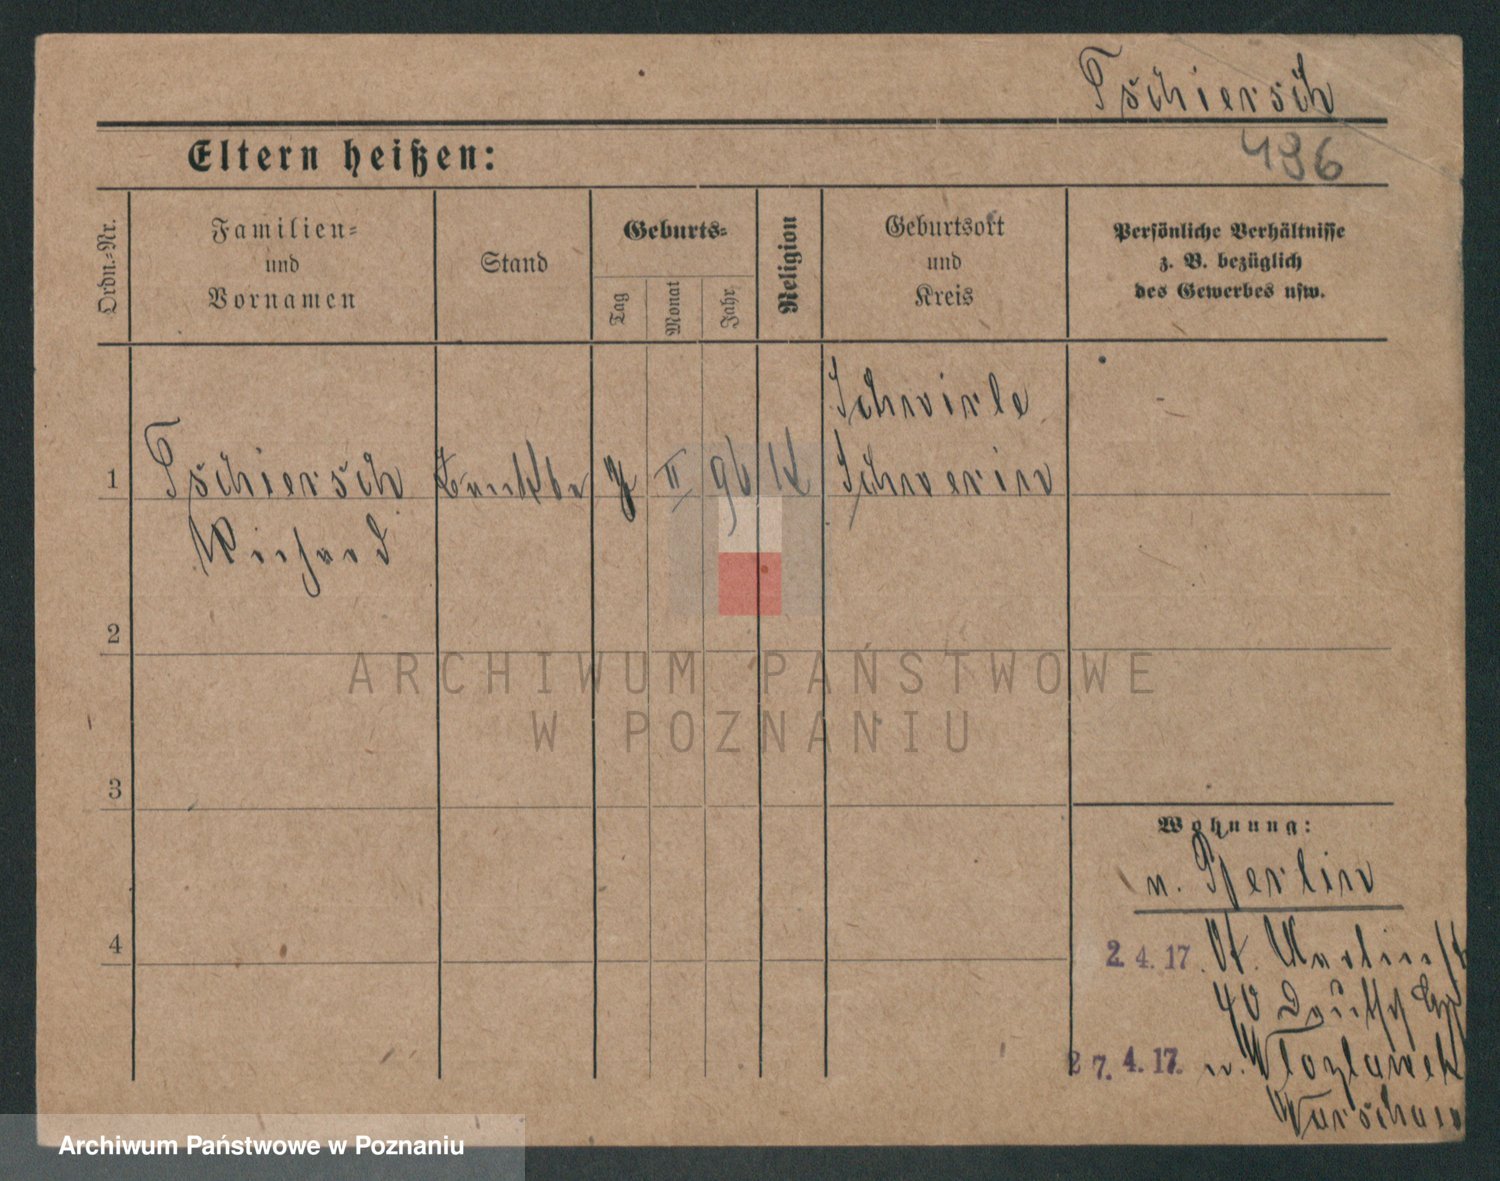 Tschiersch
Eltern heißen:
496
Ordn.-Nr.
Familien-
und
Vornamen
Stand
Geburts-
Tag
Monat
Jahr
Religion
Geburtsort
und
Kreis
Persönliche Verhältnisse
z. B. bezüglich
des Gewerbes usw.
Schwirle
1 Tschiersch II 96 K Schwerin
Richard
2
3
4
ARCHIWUM PAŃSTWOWE
W POZNANIU
Wohnung:
n. Berlin
2. 4. 17. St. Martinst
40
27. 4. 17. n. Wlozlawek
Warschau
Archiwum Państwowe w Poznaniu